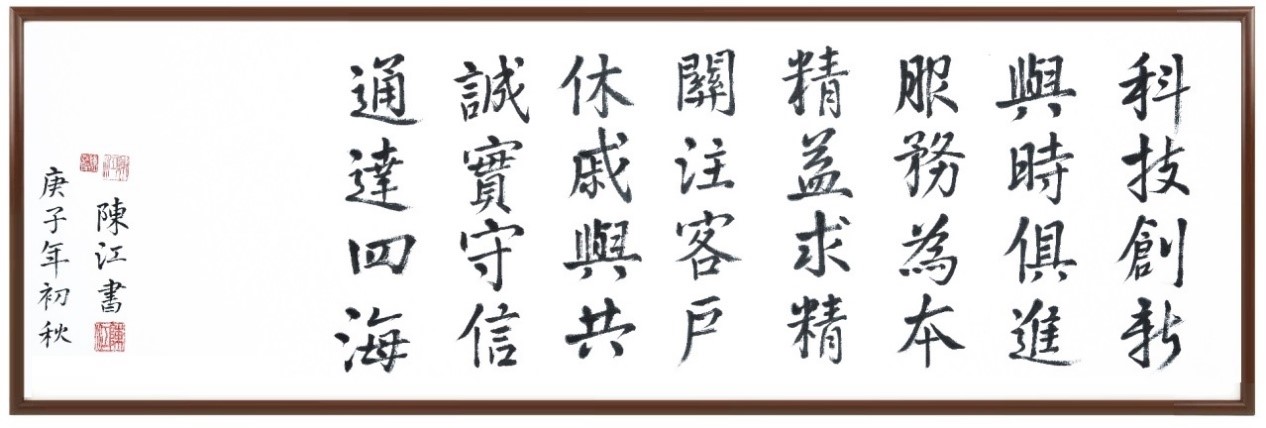 科技創新
與時俱進
服務為本
精益求精
關注客戶
休戚與共
誠實守信
通達四海
陳江書
庚子年初秋